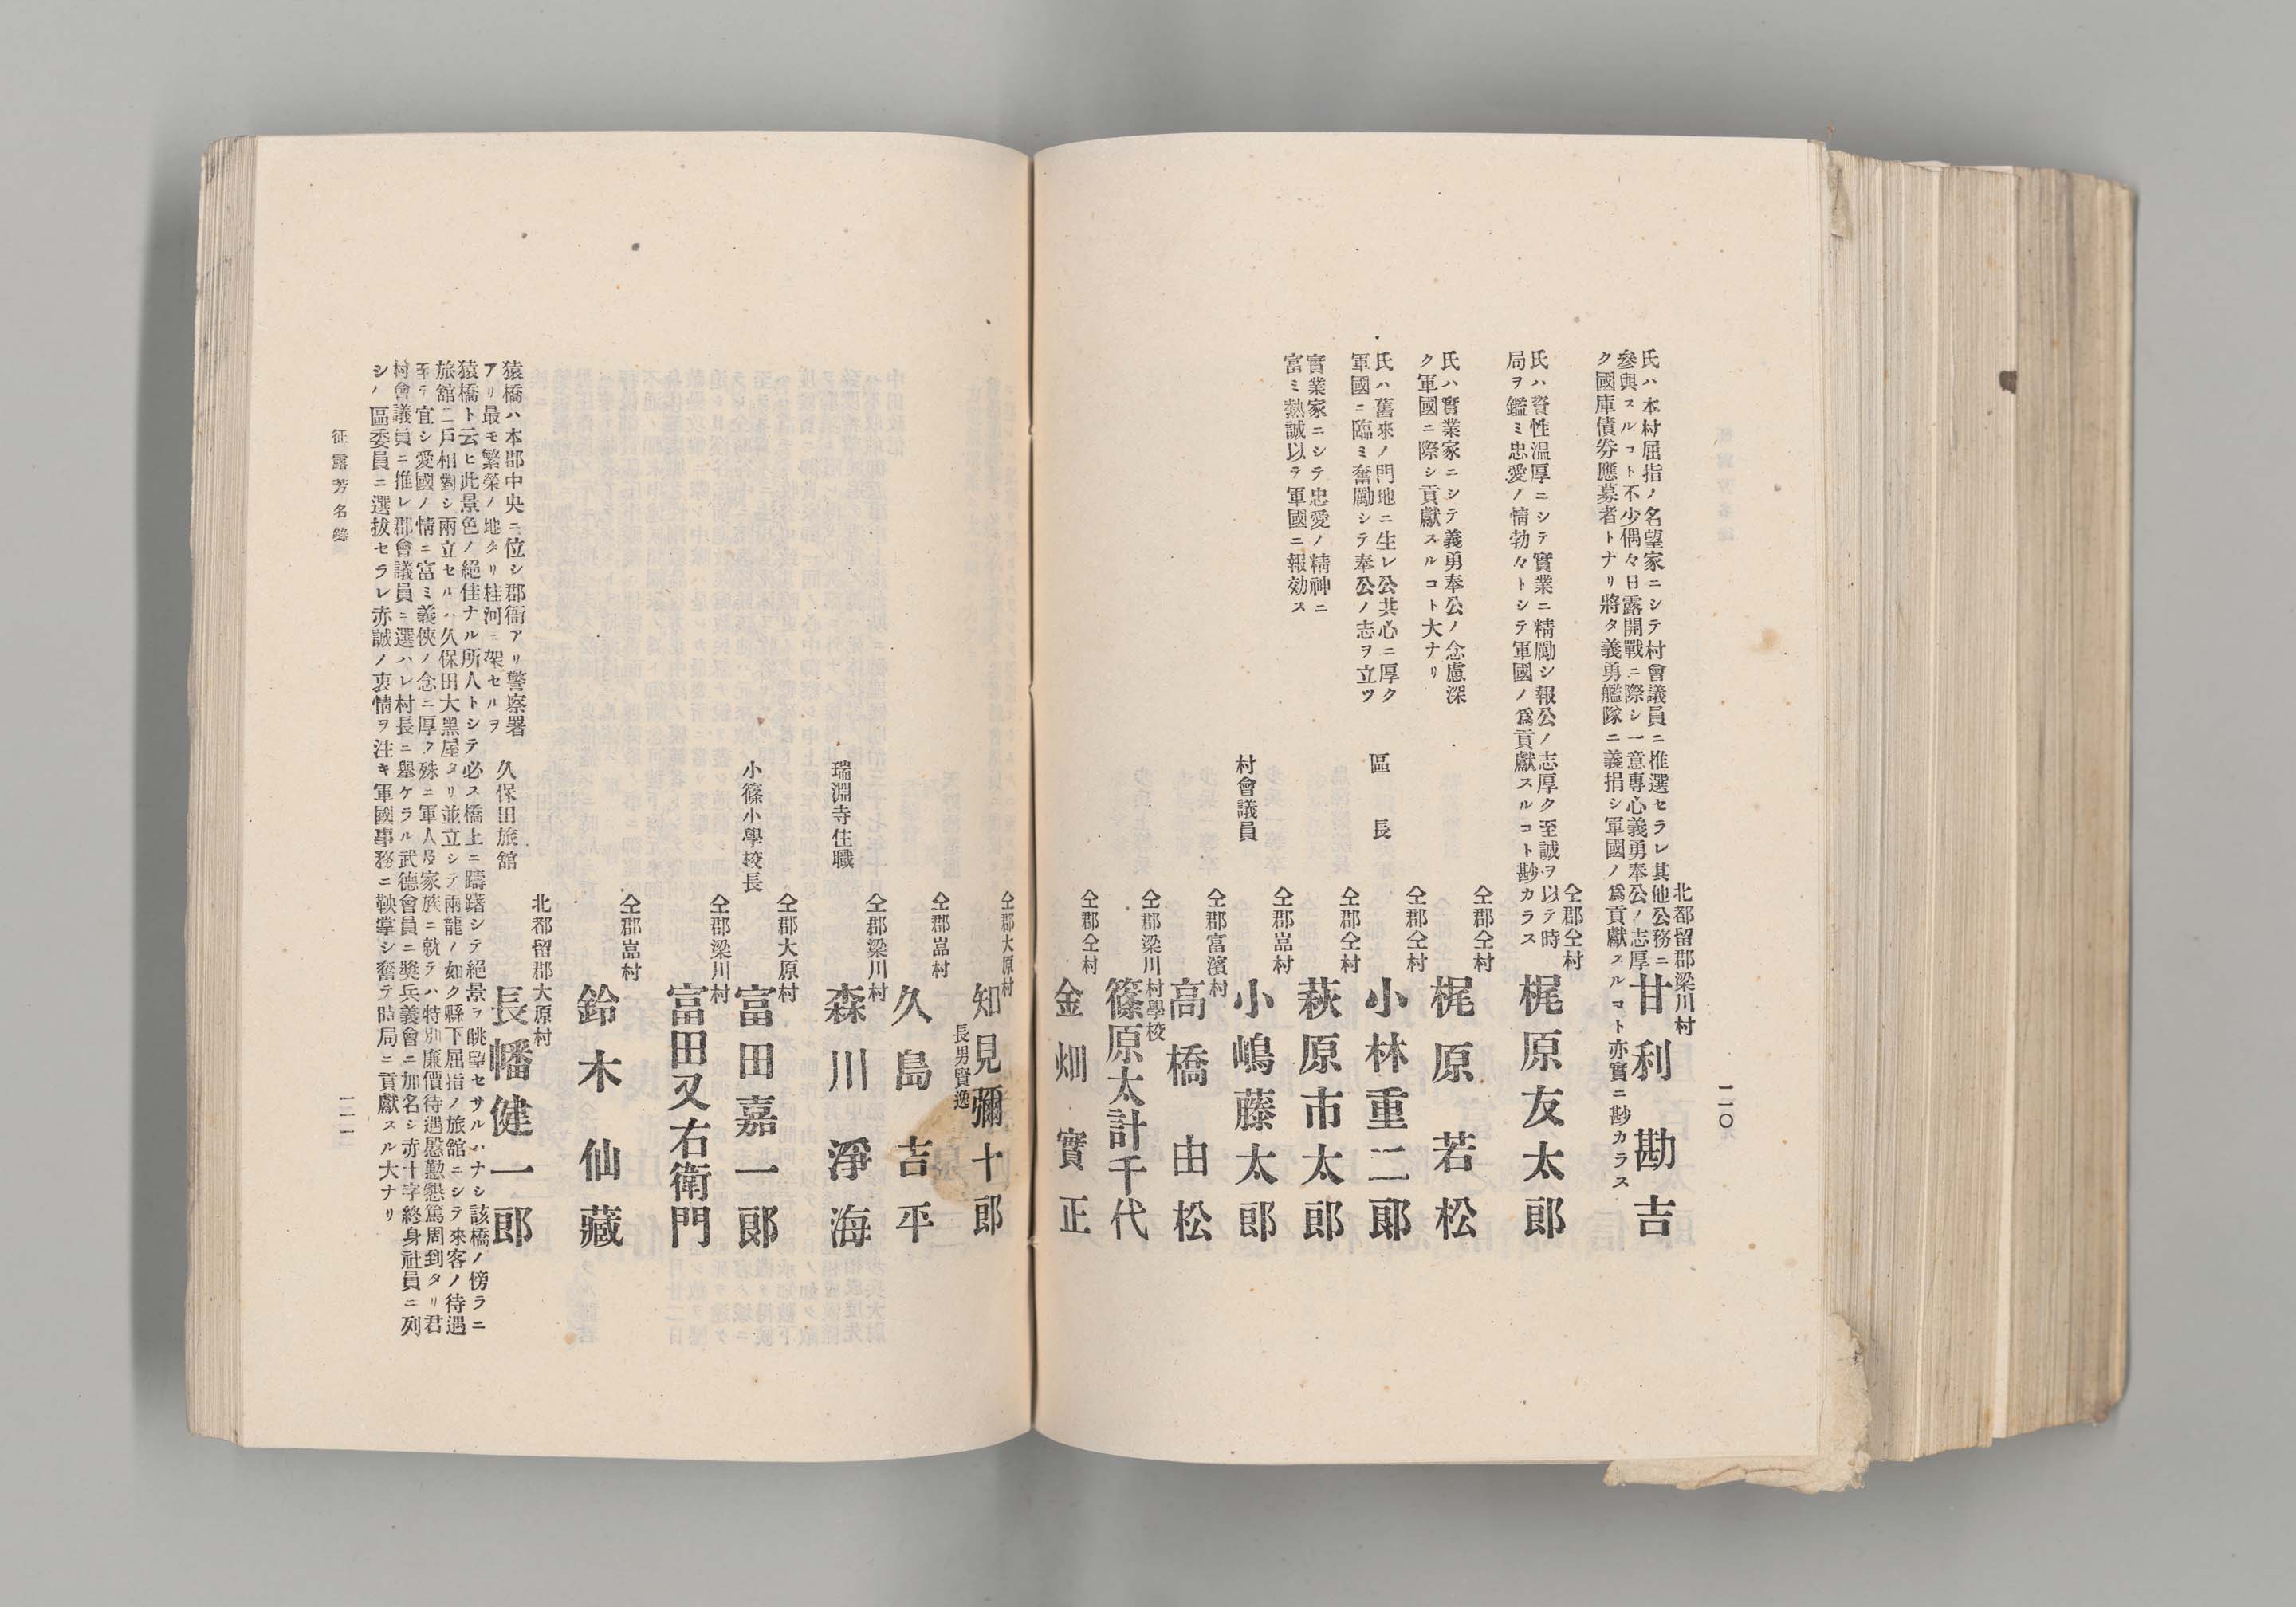 二〇
北都留郡梁川村
甘利勘吉
氏ハ本村屈指ノ名望家ニシテ村會議員ニ推選セラレ其他公務ニ
參與スルコト不少偶々日露開戰ニ際シ一意專心義勇奉公ノ志厚
ク國庫債券應募者トナリ將タ義勇艦隊ニ義捐シ軍國ノ爲貢獻スルコト亦實ニ尠カラス
仝郡仝村
梶原友太郎
氏ハ資性溫厚ニシテ實業ニ精勵シ報公ノ志厚ク至誠ヲ以テ時
局ヲ鑑ミ忠愛ノ情勃々トシテ軍國ノ爲貢獻スルコト尠カラス
仝郡仝村
梶原若松
氏ハ實業家ニシテ義勇奉公ノ念慮深
ク軍國ニ際シ貢獻スルコト大ナリ
仝郡仝村
區長
小林重二郞
氏ハ舊來ノ門地ニ生レ公共心ニ厚ク
軍國ニ臨ミ奮勵シテ奉公ノ志ヲ立ツ
仝郡仝村
萩原市太郎
實業家ニシテ忠愛ノ精神ニ
富ミ熱誠以テ軍國ニ報効ス
仝郡嵓村
村會議員
小嶋藤太郎
仝郡富濱村
高橋由松
仝郡梁川村學校
篠原太計千代
仝郡仝村
金畑實正
仝郡大原村
知見彌十郎
長男賢逸
仝郡嵓村
久島吉平
仝郡梁川村
瑞淵寺住職
森川淨海
仝郡大原村
小篠小學校長
富田嘉一郞
仝郡梁川村
富田又右衛門
仝郡嵓村
鈴木仙藏
北都留郡大原村
久保田旅舘
長幡健一郎
猿橋ハ本郡中央ニ位シ郡衙アリ警察署
アリ最モ繁榮ノ地タリ桂河ニ架セルヲ
猿橋ト云ヒ此景色ノ絕佳ナル所人トシテ必ス橋上ニ躊躇シテ絕景ヲ眺望セサルハナシ該橋ノ傍ラニ
旅舘二戶相對シ兩立セルハ久保田大黑屋タリ並立シテ兩龍ノ如ク縣下屈指ノ旅舘ニシテ來客ノ待遇
至テ宜シ愛國ノ情ニ富ミ義俠ノ念ニ厚ク殊ニ軍人及家族ニ就テハ特別廉價待遇慇懃懇篤周到タリ君
村會議員ニ推レ郡會議員ニ選ハレ村長ニ擧ケラル武德會員ニ奬兵義會ニ加名シ赤十字終身社員ニ列
シ區委員ニ選拔セラレ赤誠ノ衷情ヲ注キ軍國事務ニ鞅掌シ奮テ時局ニ貢獻スル大ナリ
征露芳名錄
二一一